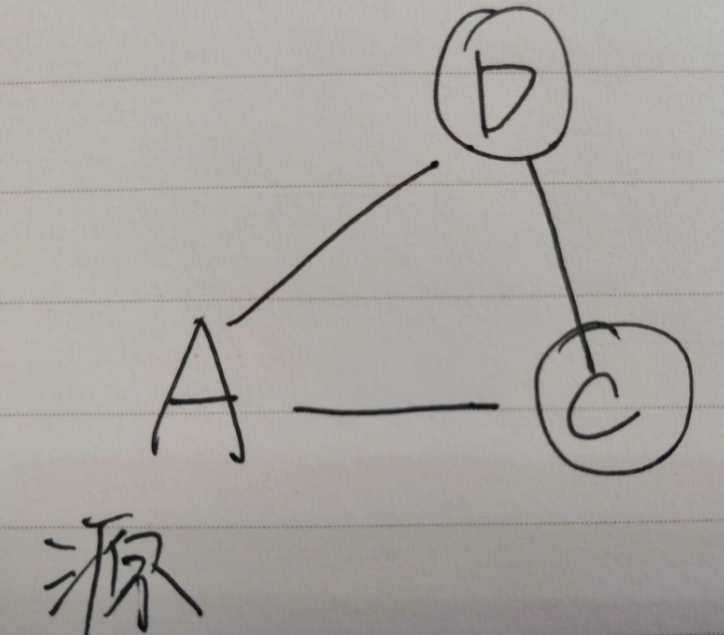 D
A
C
源